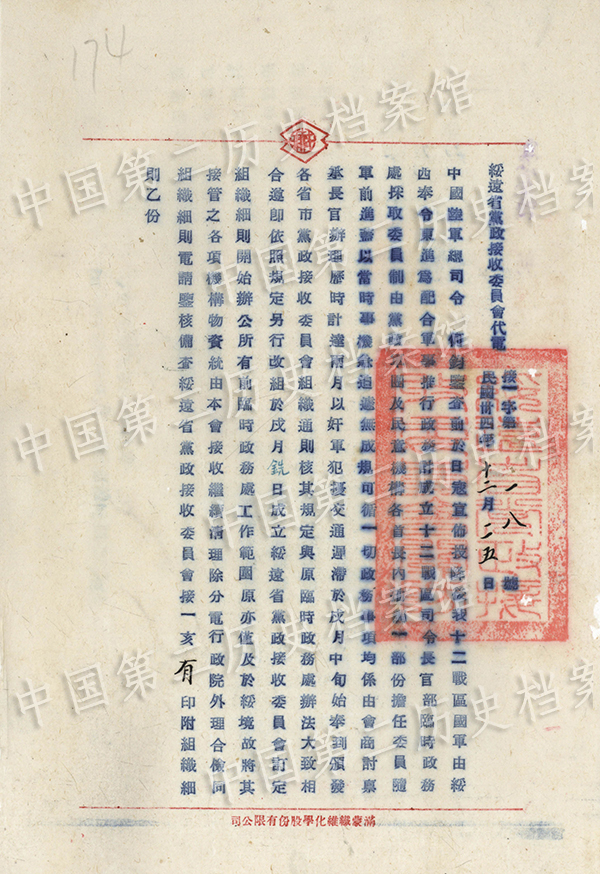 174
綏遠省黨政接收委員會代電
接一字第一一八號
民國卅四年十二月二五日
中國陸軍總司令 鈞鑒查前於日寇宣佈投降 十二戰區國軍由綏
西奉令東進為配合軍事推行政務計成立十二戰區司令長官部臨時政務
處採取委員制由黨政 團及民意機構各首長內 一部份擔任委員隨
軍前進當以當時事機 迫 無成規可循一切政務事項均係由會商討稟
承長官辦理歷時計達兩月以奸軍犯擾交通遲滯於戌月中旬始奉到頒發
各省市黨政接收委員會組織通則核其規定與原臨時政務處辦法大致相
合遂即依照規定另行改組於戌月銑日成立綏遠省黨政接收委員會訂定
組織細則開始辦公所有前臨時政務處工作範圍原亦僅及於綏境故將其
接管之各項機構物資統由本會接收繼續清理除分電行政院外理合檢同
組織細則電請鑒核備查綏遠省黨政接收委員會接一亥有印附組織細
則乙份
滿蒙纖維化學股份有限公司
中国第二历史档案馆
中国第二历史档案馆
中国第二历史档案馆
中国第二历史档案馆